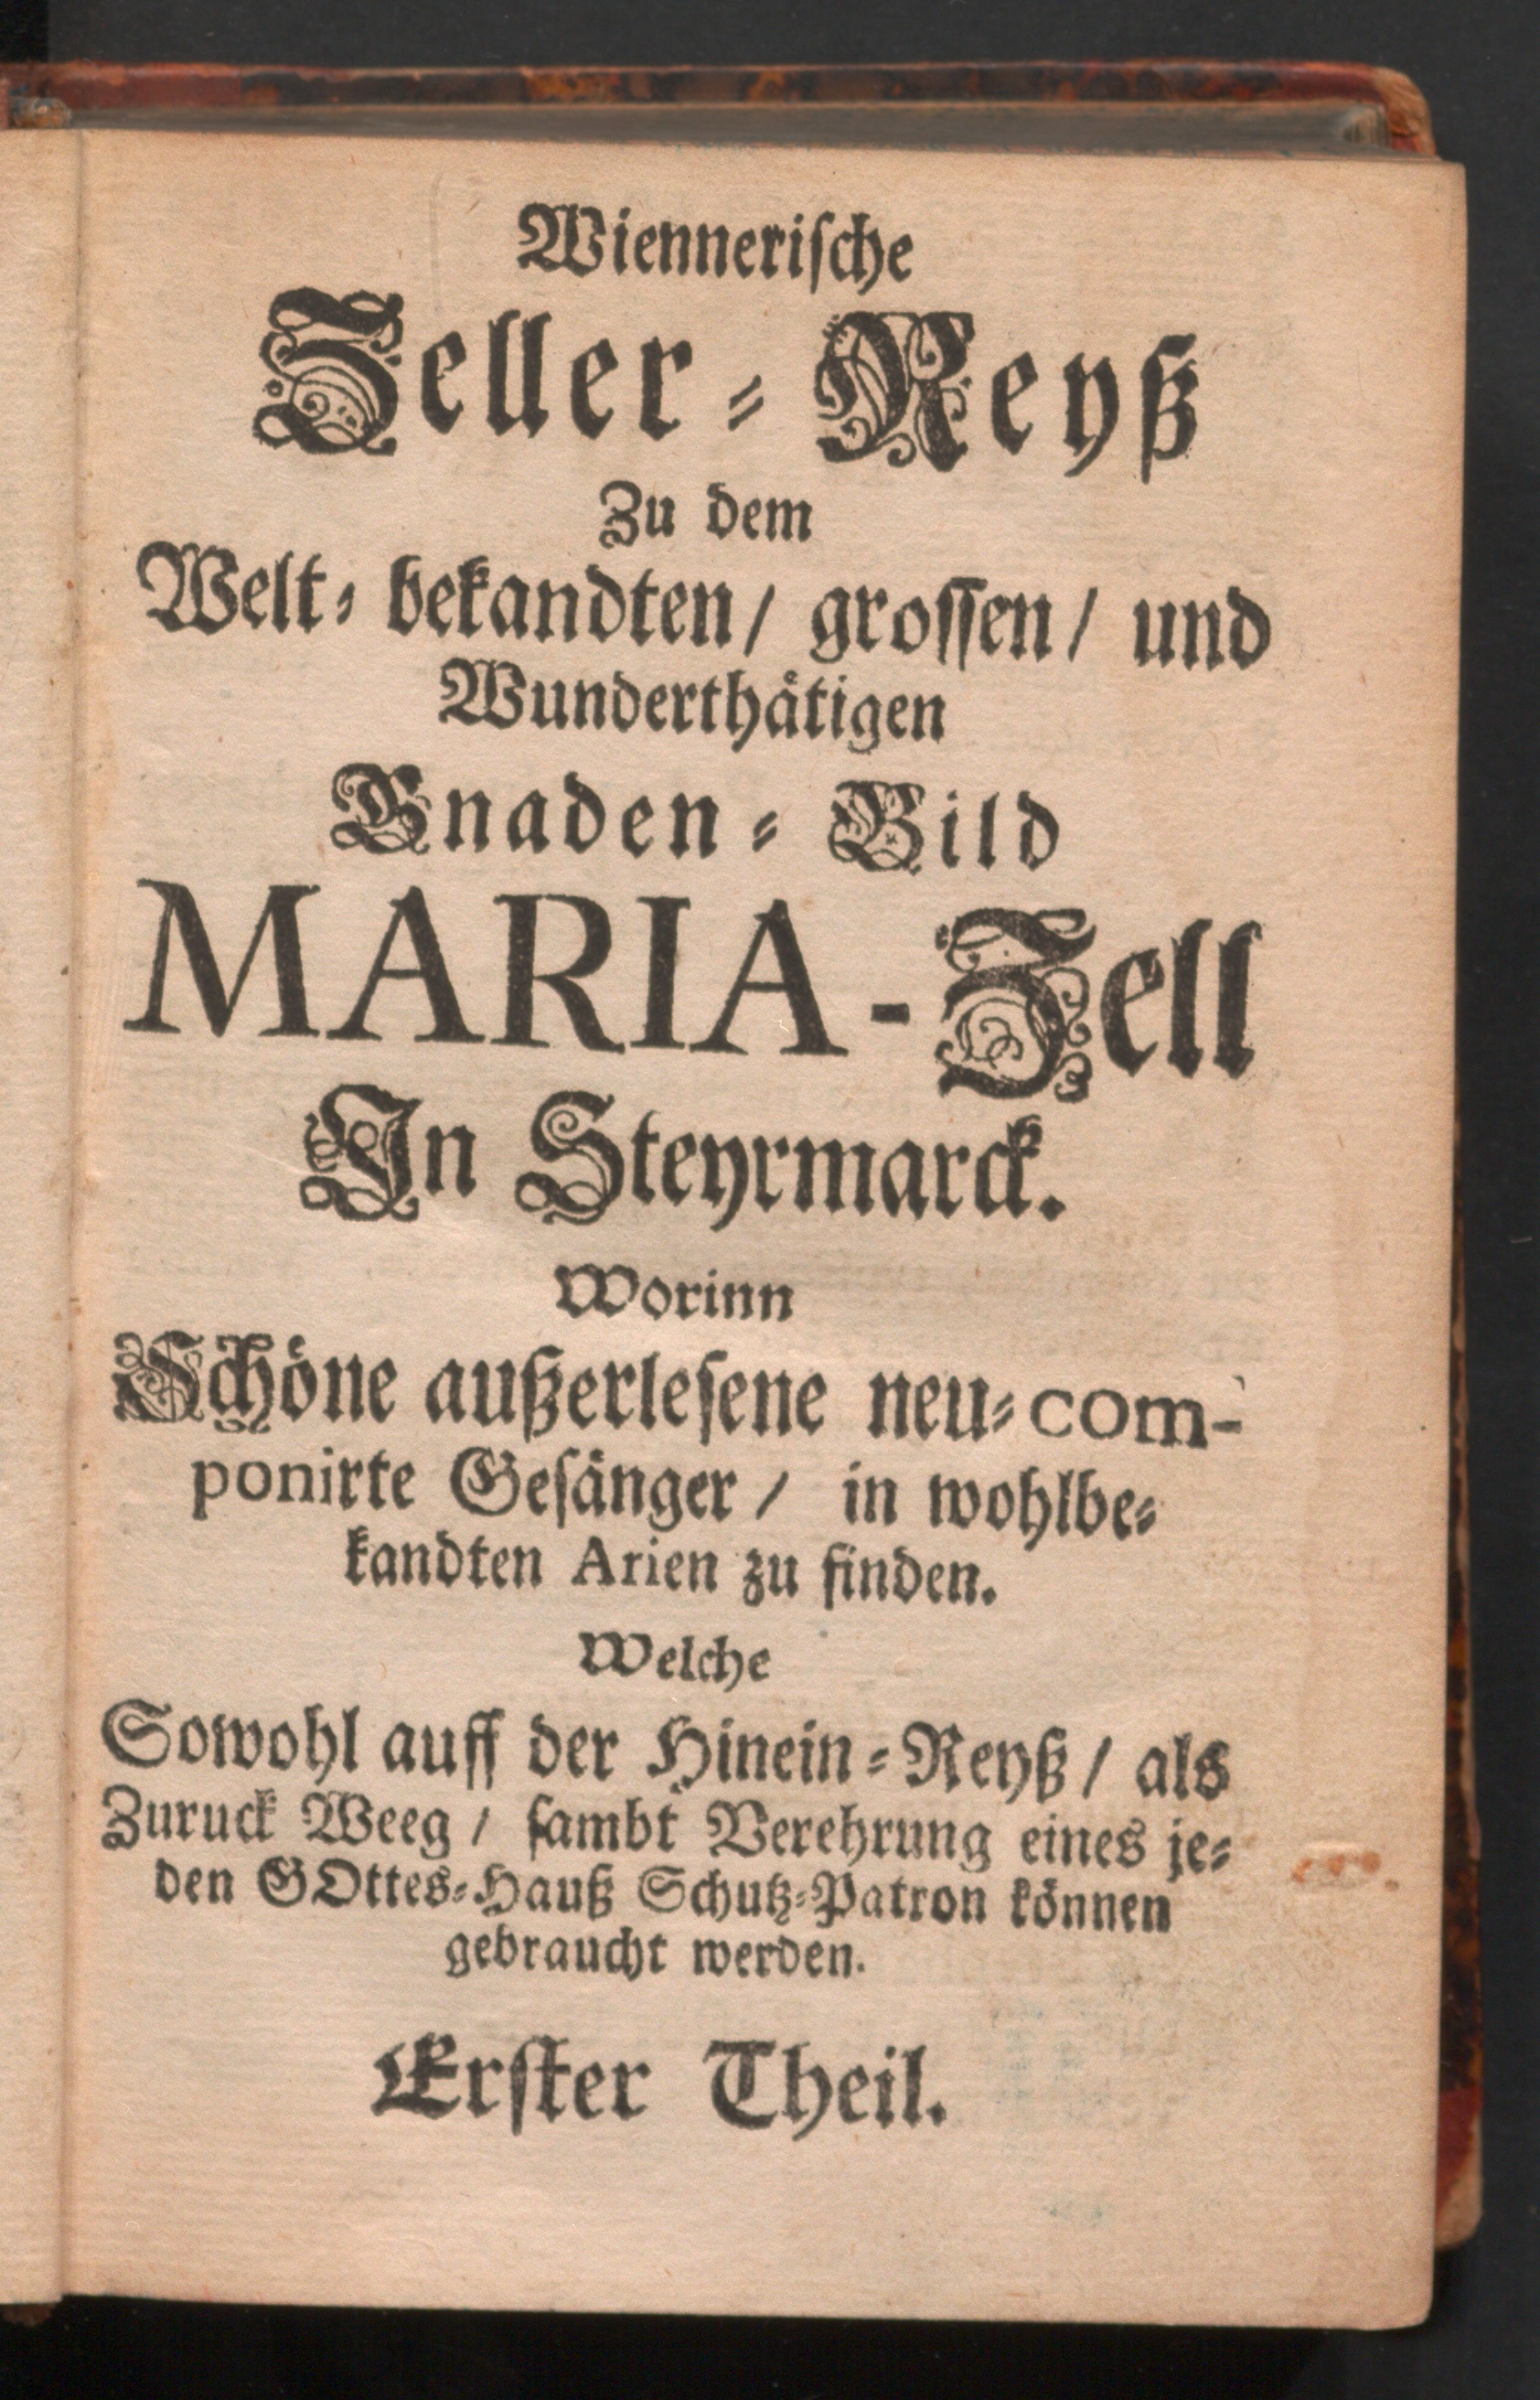 Wiennerische
Zeller-Reyß
Zu dem
Welt-bekandten/ grossen/ und
Wunderthätigen
Gnaden-Bild
MARIA-Zell
In Steyrmarck.
Worinn
Schöne außerlesene neu-com-
ponirte Gesänger/ in wohlbe-
kandten Arien zu finden.
Welche
Sowohl auff der Hinein-Reyß/ als
Zuruck Weeg/ sambt Verehrung eines je-
den GOttes-Hauß Schutz-Patron können
gebraucht werden.
Erster Theil.